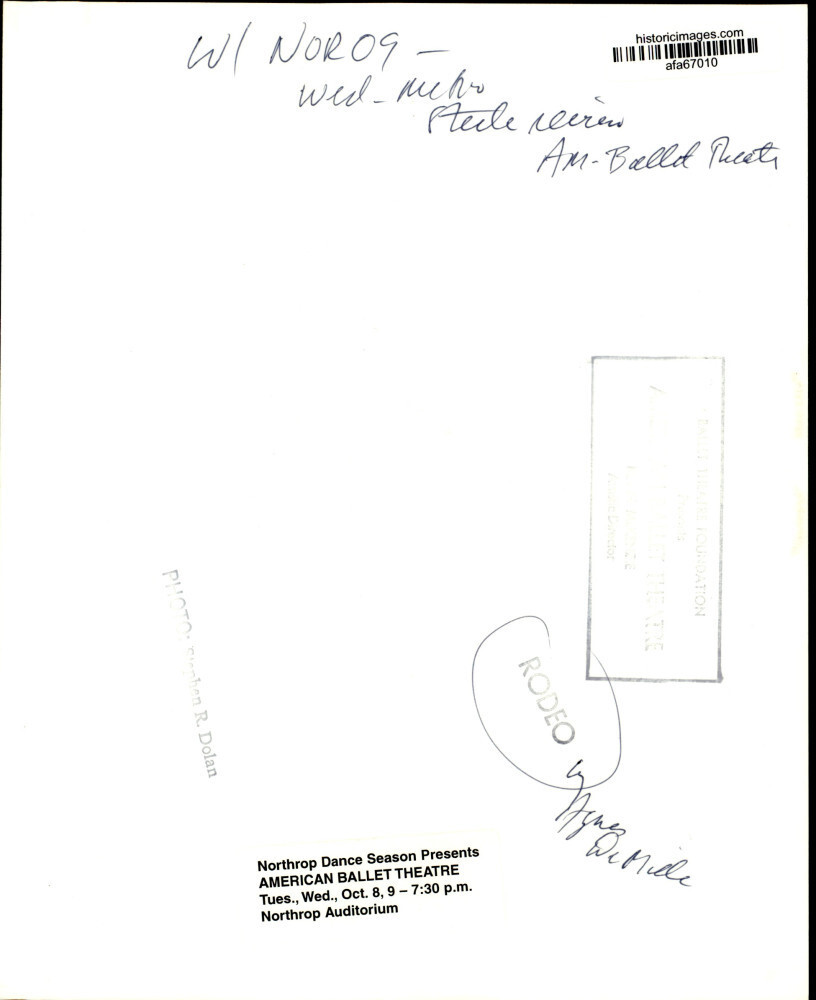 W/ NOR09 –
Wed – metro
Steele review
Am-Ballet Theatr
historicimages.com
afa67010
BALLET THEATRE FOUNDATION
BALLET THEATRE
Director
PHOTO: Stephen R. Dolan
RODEO
by
Agnes
DeMille
Northrop Dance Season Presents
AMERICAN BALLET THEATRE
Tues., Wed., Oct. 8, 9 – 7:30 p.m.
Northrop Auditorium